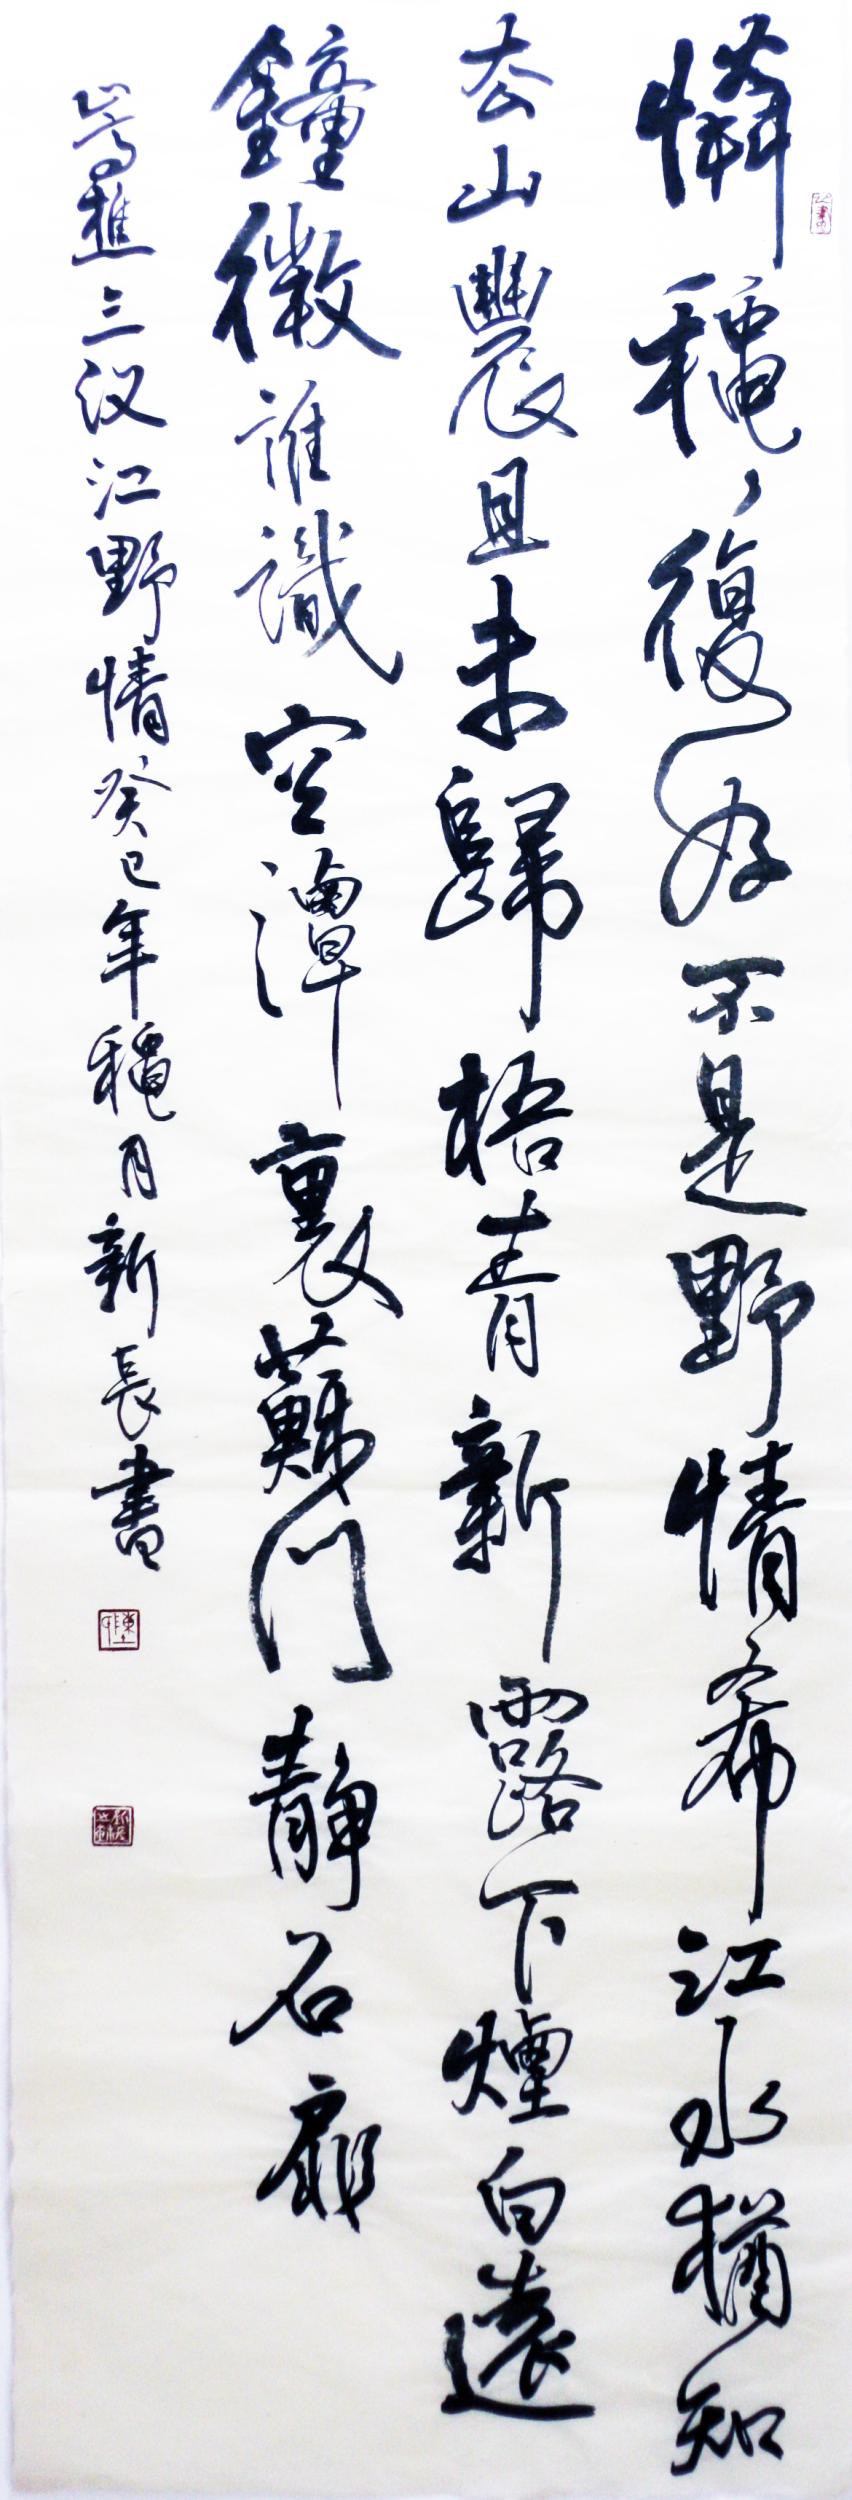 憐穐〻復好不是野情希江水猶知
去山農且未歸梧青新露下煙白遠
鐘微誰識空潭裏蘇門靜石扉
嵩樵三汊江野情癸巳年穐月新長書